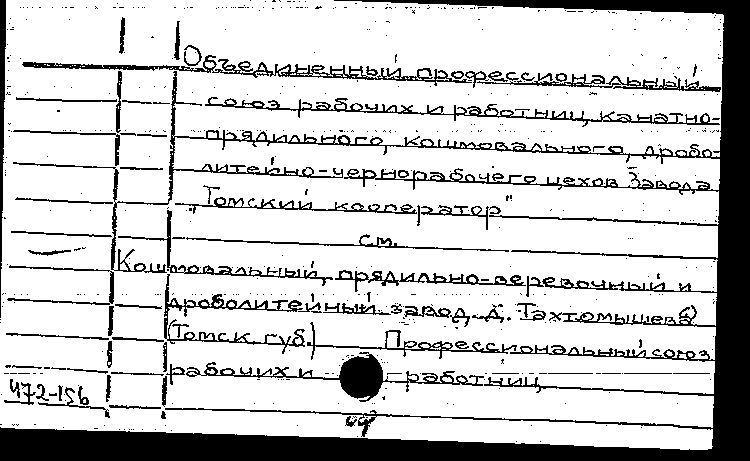 Объединенный профессиональный
союз рабочих и работниц канатно-
прядильного, кошмовального, дробо-
литейно-чернорабочего цехов Завода
"Томский кооператор"
см.
Кошмовальный, прядильно-веревочный и
дроболитейный завод, д. Тахтомышева
(Томск. губ.) Профессиональный союз
рабочих и работниц
472-156